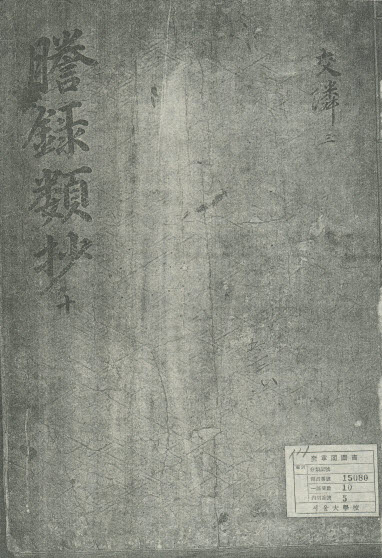 謄録類抄 十
交隣 三
奎章閣圖書
15080
10
5
서울大學校